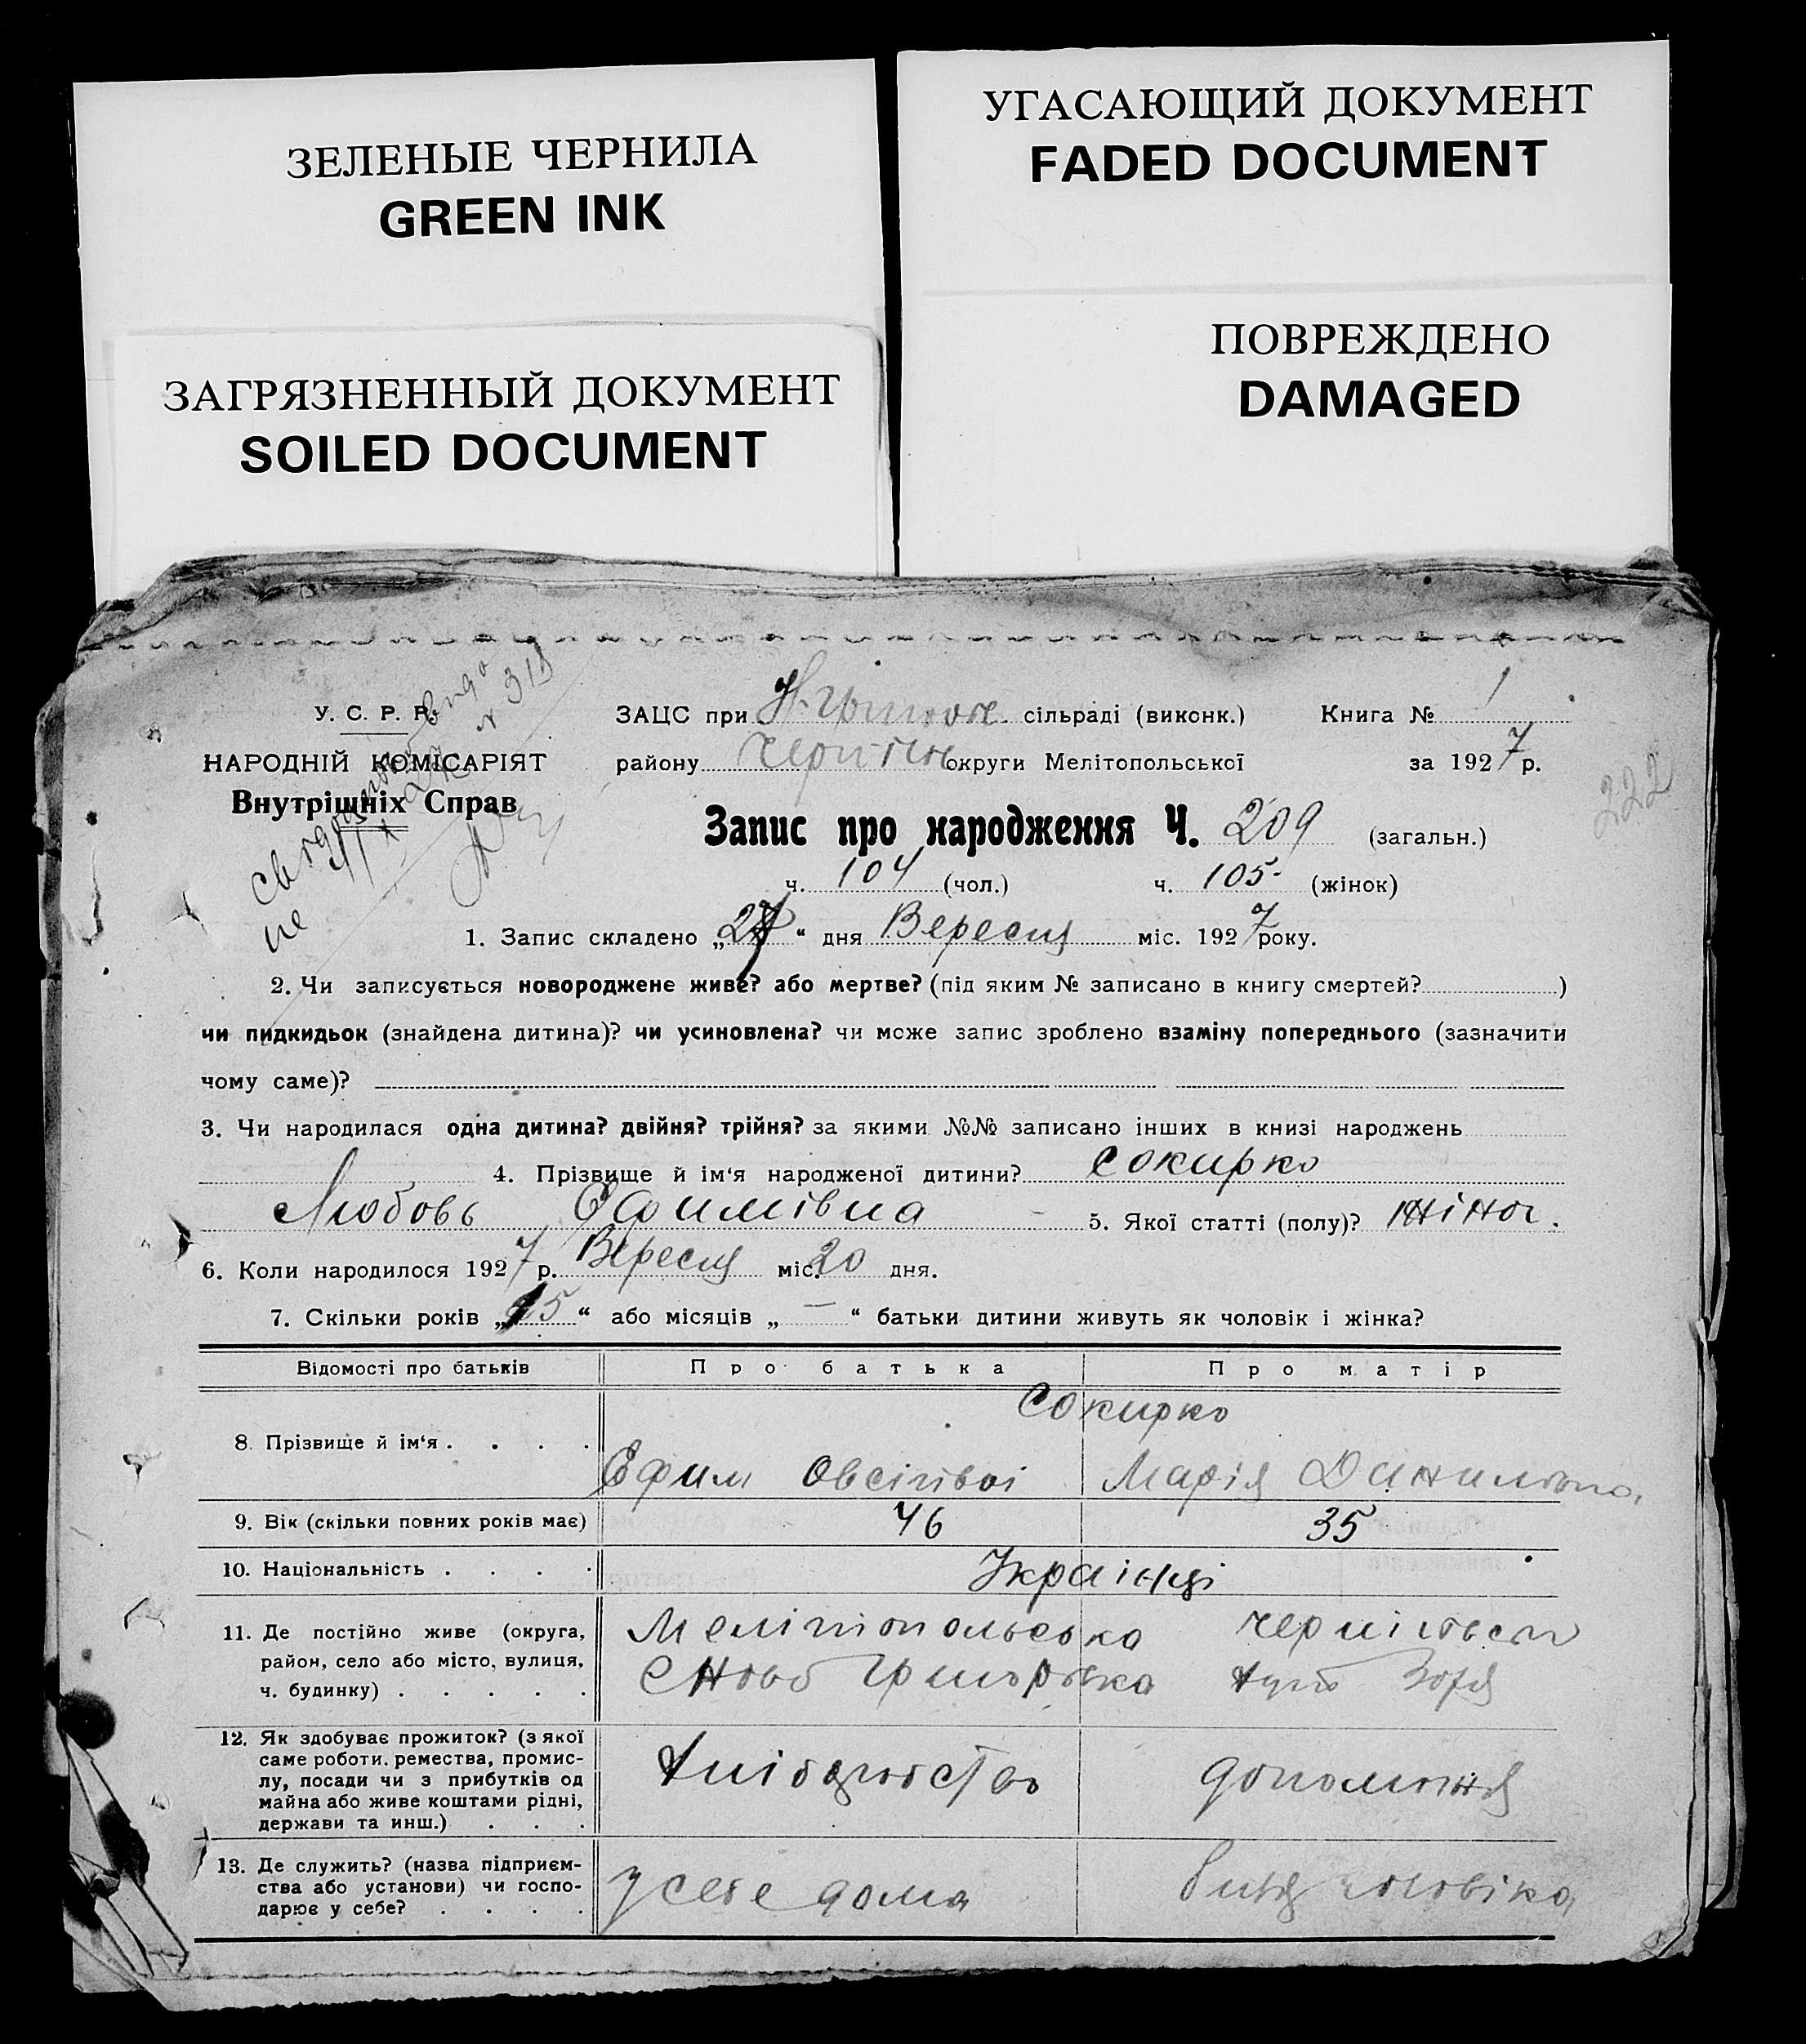 ЗЕЛЕНЫЕ ЧЕРНИЛА
GREEN INK
УГАСАЮЩИЙ ДОКУМЕНТ
FADED DOCUMENT
ЗАГРЯЗНЕННЫЙ ДОКУМЕНТ
SOILED DOCUMENT
ПОВРЕЖДЕНО
DAMAGED
№ 318
У. С. Р. Р.
НАРОДНІЙ КОМІСАРІЯТ
Внутрішніх Справ
ЗАЦС при сільраді (виконк.) Книга № 1
району округи Мелітопольської за 1927 р.
222
Запис про народження Ч. 209 (загальн.)
ч. 104 (чол.) ч. 105 (жінок)
1. Запис складено „27“ дня Вересня міс. 1927 року.
2. Чи записується новороджене живе? або мертве? (під яким № записано в книгу смертей? )
чи пидкидьок (знайдена дитина)? чи усиновлена? чи може запис зроблено взаміну попереднього (зазначити
чому саме)?
3. Чи народилася одна дитина? двійня? трійня? за якими №№ записано інших в книзі народжень
4. Прізвище й ім‘я народженої дитини? Сокирко
Любовь Єфимівна 5. Якої статті (полу)? жіноч.
6. Коли народилося 1927 р. Вересня міс. 20 дня.
7. Скільки років „15“ або місяців „—“ батьки дитини живуть як чоловік і жінка?
Відомості про батьків Про батька Про матір
Сокирко
8. Прізвище й ім‘я . . . .
Єфим Марія
9. Вік (скільки повних років має) 46 35
10. Національність . . . . Українці
11. Де постійно живе (округа, район, село або місто, вулиця, ч. будинку) . . . . .
Мелітопольська
Зоря
12. Як здобуває прожиток? (з якої саме роботи, ремества, промислу, посади чи з прибутків од майна або живе коштами рідні, держави та инш.) . . .
13. Де служить? (назва підприємства або установи) чи господарює у себе? . . . .
у себе дома чоловіка